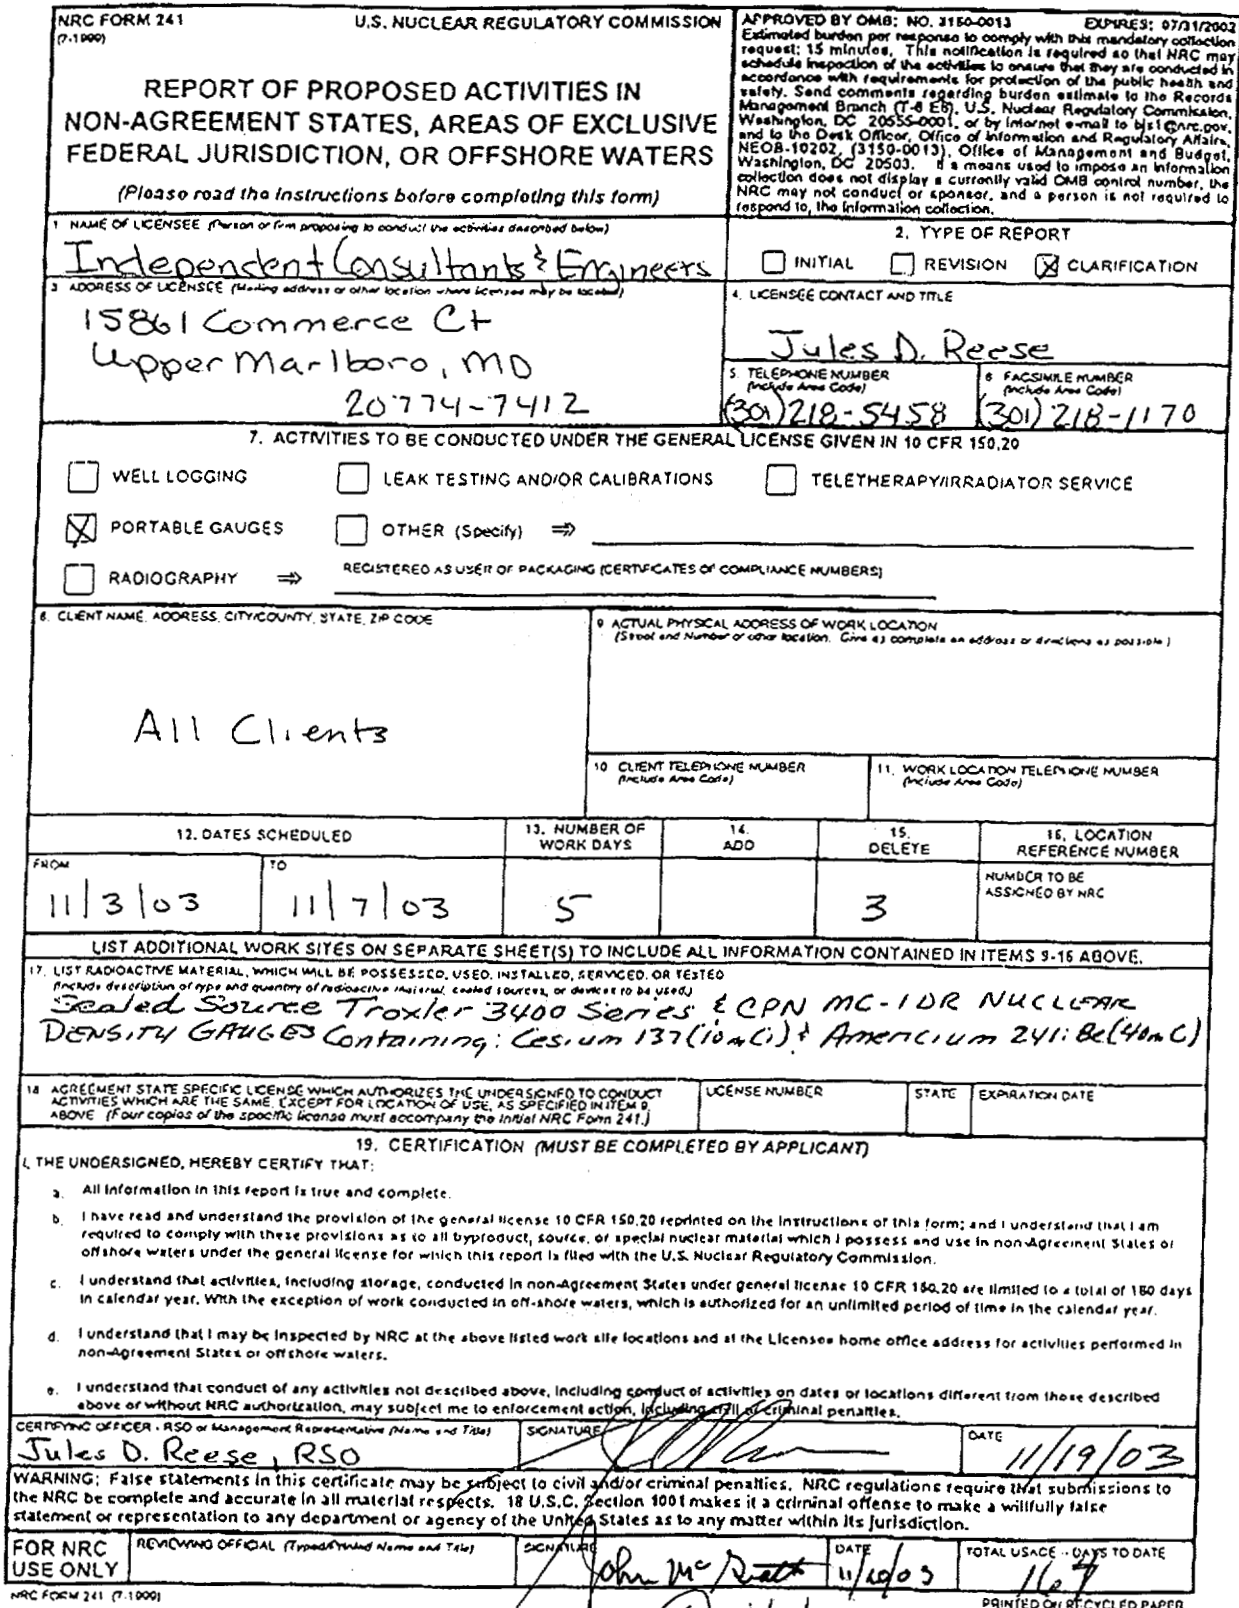 NRC FORM 241
(7-1999)
U.S. NUCLEAR REGULATORY COMMISSION
REPORT OF PROPOSED ACTIVITIES IN
NON-AGREEMENT STATES, AREAS OF EXCLUSIVE
FEDERAL JURISDICTION, OR OFFSHORE WATERS
(Please read the instructions before completing this form)
APPROVED BY OMB: NO. 3150-0013 EXPIRES: 07/31/2002
Estimated burden per response to comply with this mandatory collection
request: 15 minutes. This notification is required so that NRC may
schedule inspection of the activities to ensure that they are conducted in
accordance with requirements for protection of the public health and
safety. Send comments regarding burden estimate to the Records
Management Branch (T-6 E6), U.S. Nuclear Regulatory Commission,
Washington, DC 20555-0001, or by Internet e-mail to bjs1@nrc.gov,
and to the Desk Officer, Office of Information and Regulatory Affairs,
NEOB-10202, (3150-0013), Office of Management and Budget,
Washington, DC 20503. If a means used to impose an information
collection does not display a currently valid OMB control number, the
NRC may not conduct or sponsor, and a person is not required to
respond to, the information collection.
1 NAME OF LICENSEE (Person or firm proposing to conduct the activities described below)
Independent Consultants & Engineers
2. TYPE OF REPORT
INITIAL REVISION CLARIFICATION
3 ADDRESS OF LICENSEE (Mailing address or other location where licensee may be located)
15861 Commerce Ct
Upper Marlboro, MD
20774-7412
4. LICENSEE CONTACT AND TITLE
Jules D. Reese
5. TELEPHONE NUMBER
(Include Area Code)
(301)218-5458
6 FACSIMILE NUMBER
(Include Area Code)
(301)218-1170
7. ACTIVITIES TO BE CONDUCTED UNDER THE GENERAL LICENSE GIVEN IN 10 CFR 150.20
WELL LOGGING LEAK TESTING AND/OR CALIBRATIONS TELETHERAPY/IRRADIATOR SERVICE
PORTABLE GAUGES OTHER (Specify) ⇒
RADIOGRAPHY ⇒ REGISTERED AS USER OF PACKAGING (CERTIFICATES OF COMPLIANCE NUMBERS)
8. CLIENT NAME, ADDRESS, CITY/COUNTY, STATE, ZIP CODE
All Clients
9 ACTUAL PHYSICAL ADDRESS OF WORK LOCATION
(Street and Number or other location. Give as complete an address or directions as possible)
10 CLIENT TELEPHONE NUMBER
(Include Area Code)
11. WORK LOCATION TELEPHONE NUMBER
(Include Area Code)
12. DATES SCHEDULED
13. NUMBER OF
WORK DAYS
14.
ADD
15.
DELETE
16. LOCATION
REFERENCE NUMBER
FROM
11/3/03
TO
11/7/03
5
3
NUMBER TO BE
ASSIGNED BY NRC
LIST ADDITIONAL WORK SITES ON SEPARATE SHEET(S) TO INCLUDE ALL INFORMATION CONTAINED IN ITEMS 9-16 ABOVE.
17. LIST RADIOACTIVE MATERIAL, WHICH WILL BE POSSESSED, USED, INSTALLED, SERVICED, OR TESTED
(Include description of type and quantity of radioactive material, sealed sources, or devices to be used.)
Sealed Source Troxler 3400 Series & CPN MC-1DR NUCLEAR
DENSITY GAUGES Containing: Cesium 137 (10mCi) & Americium 241:Be (40mC)
18 AGREEMENT STATE SPECIFIC LICENSE WHICH AUTHORIZES THE UNDERSIGNED TO CONDUCT
ACTIVITIES WHICH ARE THE SAME, EXCEPT FOR LOCATION OF USE, AS SPECIFIED IN ITEM 9
ABOVE (Four copies of the specific license must accompany the initial NRC Form 241.)
LICENSE NUMBER
STATE
EXPIRATION DATE
19. CERTIFICATION (MUST BE COMPLETED BY APPLICANT)
I, THE UNDERSIGNED, HEREBY CERTIFY THAT:
a. All information in this report is true and complete.
b. I have read and understand the provision of the general license 10 CFR 150.20 reprinted on the instructions of this form; and I understand that I am
required to comply with these provisions as to all byproduct, source, or special nuclear material which I possess and use in non-Agreement States or
offshore waters under the general license for which this report is filed with the U.S. Nuclear Regulatory Commission.
c. I understand that activities, including storage, conducted in non-Agreement States under general license 10 CFR 150.20 are limited to a total of 180 days
in calendar year. With the exception of work conducted in off-shore waters, which is authorized for an unlimited period of time in the calendar year.
d. I understand that I may be inspected by NRC at the above listed work site locations and at the Licensee home office address for activities performed in
non-Agreement States or offshore waters.
e. I understand that conduct of any activities not described above, including conduct of activities on dates or locations different from those described
above or without NRC authorization, may subject me to enforcement action, including civil or criminal penalties.
CERTIFYING OFFICER - RSO or Management Representative (Name and Title)
Jules D. Reese, RSO
SIGNATURE
DATE
11/19/03
WARNING: False statements in this certificate may be subject to civil and/or criminal penalties. NRC regulations require that submissions to
the NRC be complete and accurate in all material respects. 18 U.S.C. Section 1001 makes it a criminal offense to make a willfully false
statement or representation to any department or agency of the United States as to any matter within its jurisdiction.
FOR NRC
USE ONLY
REVIEWING OFFICIAL (Typed/Printed Name and Title)
SIGNATURE
John McGrath
DATE
11/20/03
TOTAL USAGE - DAYS TO DATE
167
NRC FORM 241 (7-1999)
PRINTED ON RECYCLED PAPER